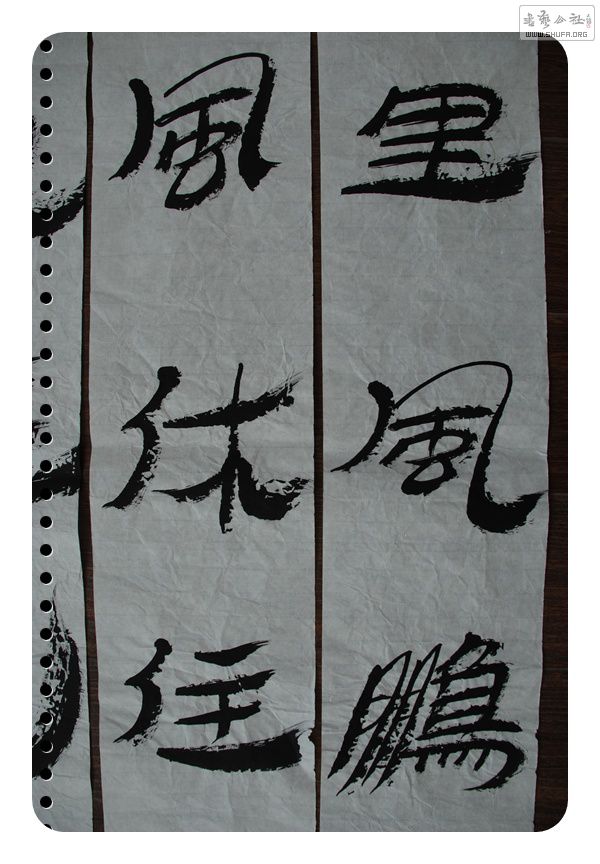 里風鵬
風休住
书艺公社
WWW.SHUFA.ORG